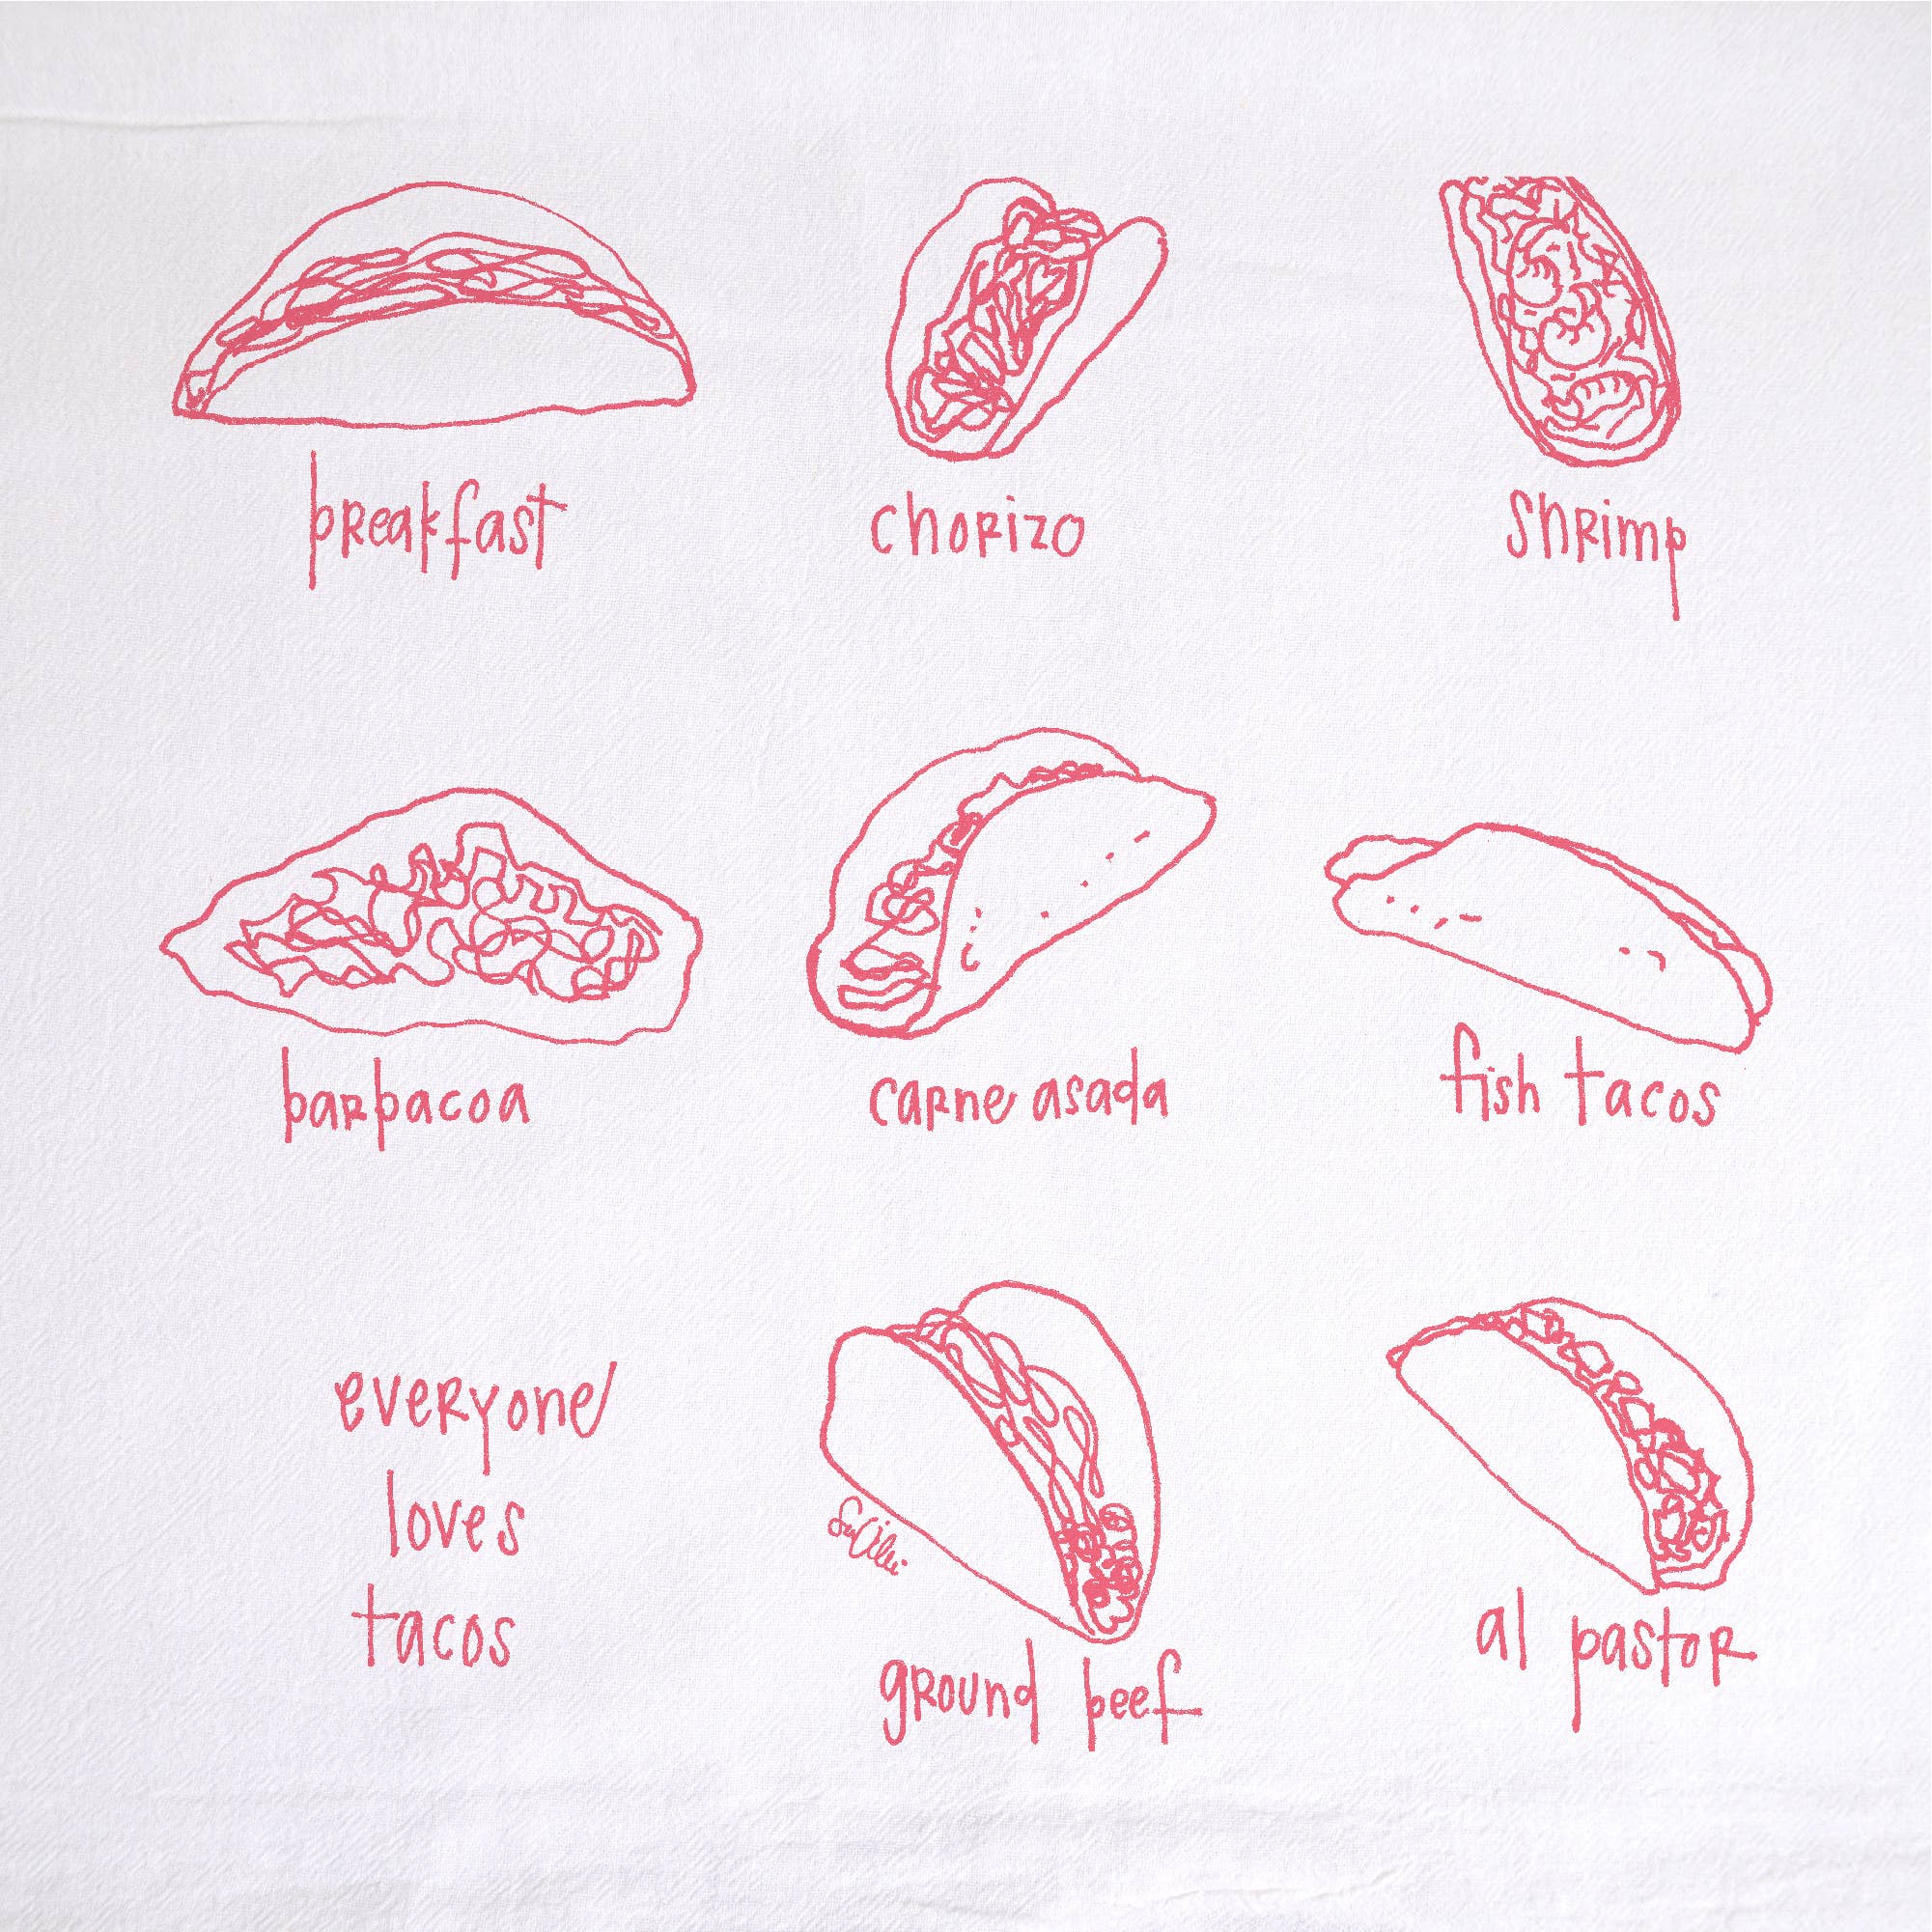 breakfast
chorizo
shrimp
barbacoa
carne asada
fish tacos
everyone
loves
tacos
ground beef
al pastor